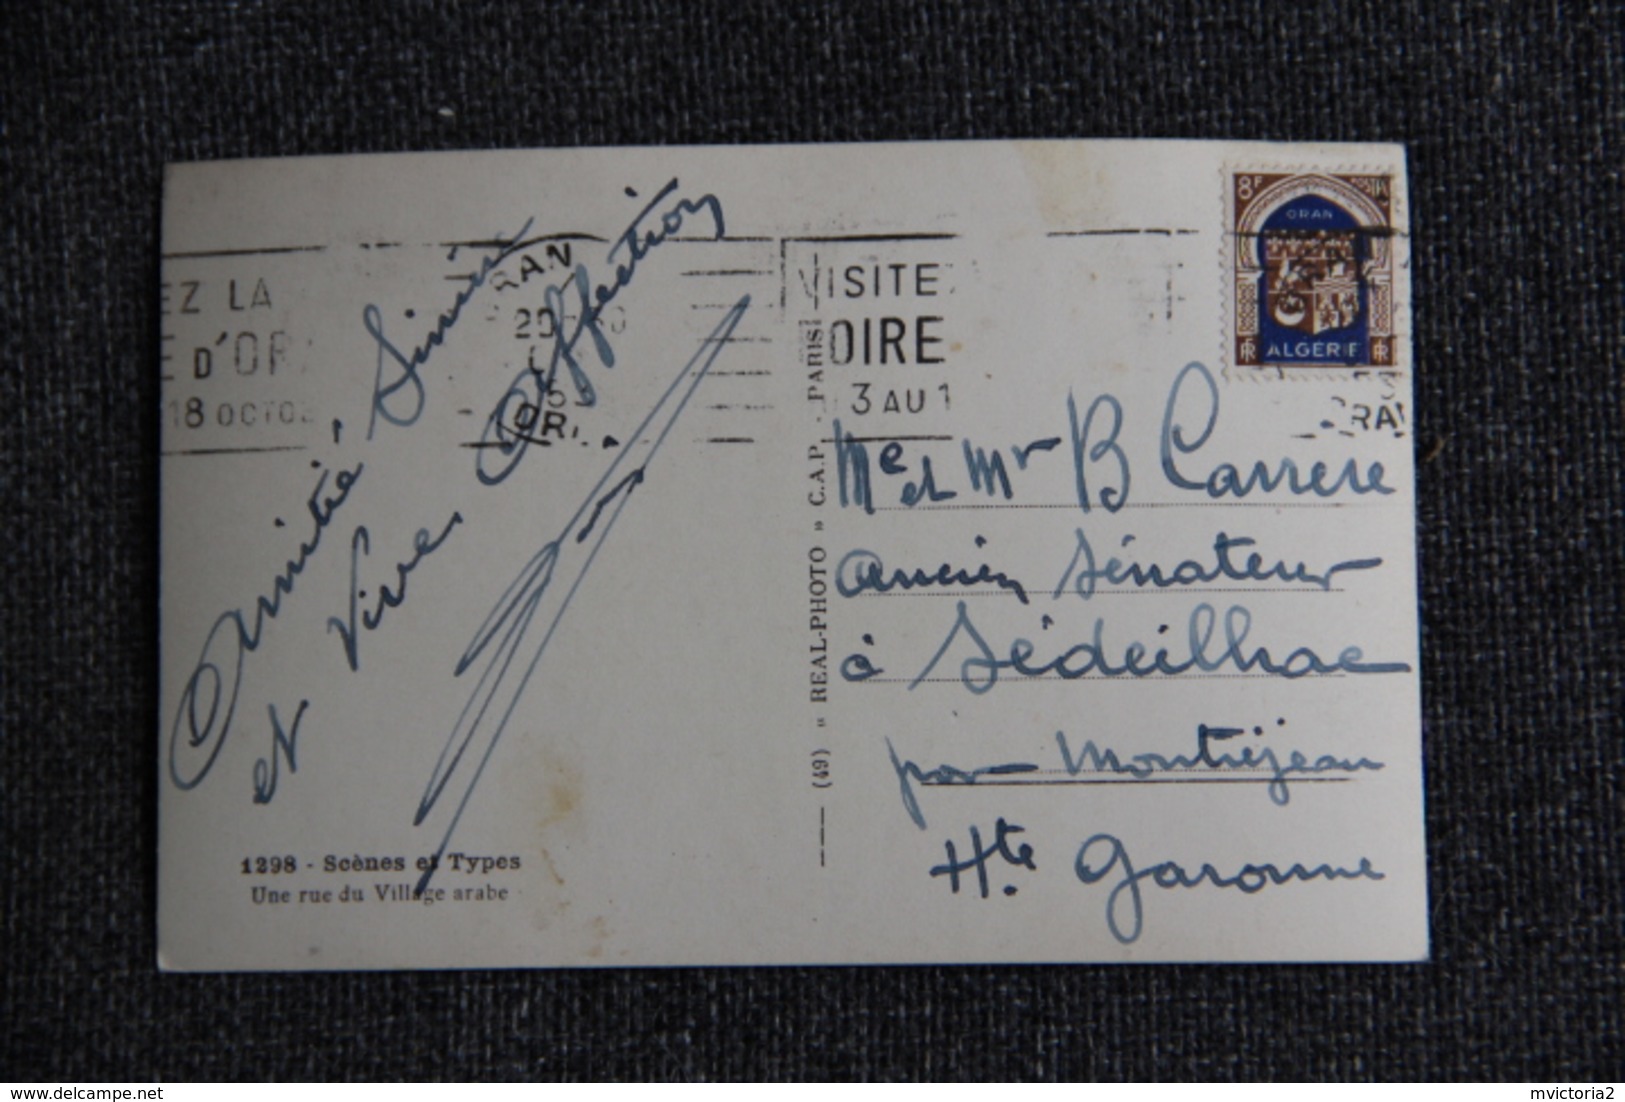 Amitié Sincère
et Vive Affection
1298 - Scènes et Types
Une rue du Village arabe
EZ LA
E D'OR
18 OCTO
RAN
20
ORA
VISITE
OIRE
3 AU 1
RAN
8F
POSTES
ORAN
RF ALGERIE RF
(49) « REAL-PHOTO » C.A.P. - PARIS
Me et Mr B Carrere
ancien Sénateur
à Sédeilhac
par Montréjeau
Hte Garonne
mvictoria2